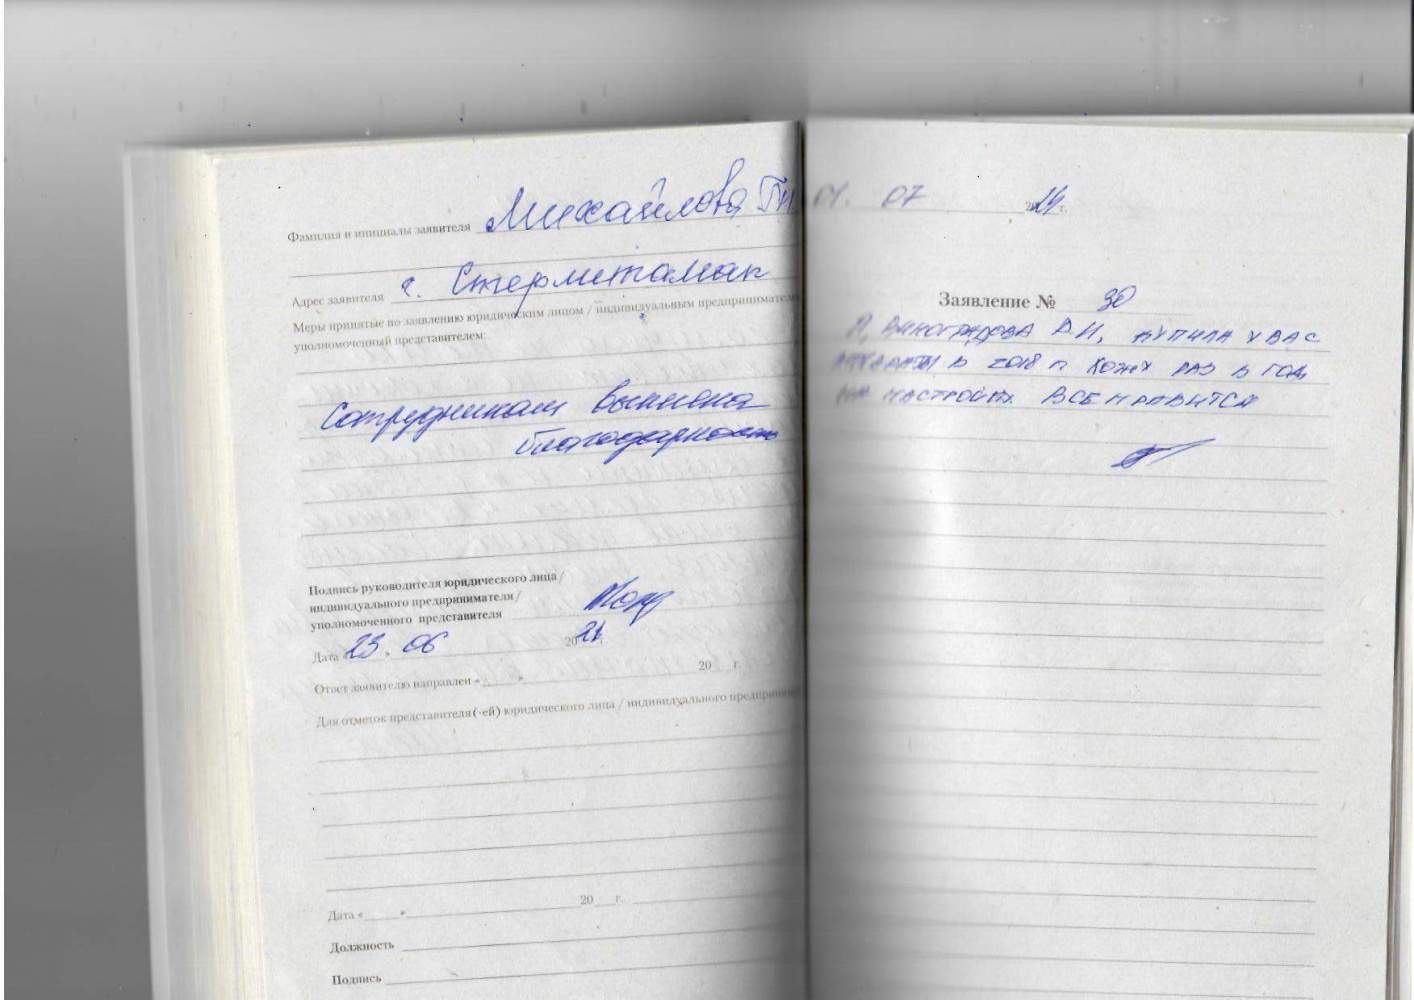 Фамилия и инициалы заявителя Михайлова Г.И
Адрес заявителя г. Стерлитамак
Меры принятые по заявлению юридическим лицом / индивидуальным предпринимателем
уполномоченный представителем:
Сотрудникам вынесена
благодарность
Подпись руководителя юридического лица/
индивидуального предпринимателя/
уполномоченного представителя
Дата «23» 06 2021 г.
Ответ заявителю направлен «____» 20___г.
Для отметок представителя (-ей) юридического лица / индивидуального предприни
Дата «_____» 20___г.
Должность
Подпись
01. 07 20 г.
Заявление № 30
Я, ВИНОГРАДОВА В.И, КУПИЛА У ВАС
АППАРАТЫ В 2018 г ХОЖУ РАЗ В ГОД
НА НАСТРОЙКУ ВСЕ НРАВИТСЯ